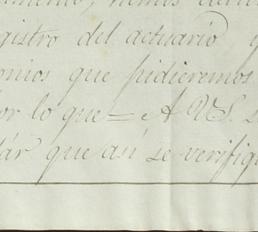 gistro del actuario y
onios que pidieremos
or lo que = A VS. s
dár que así se verifiq